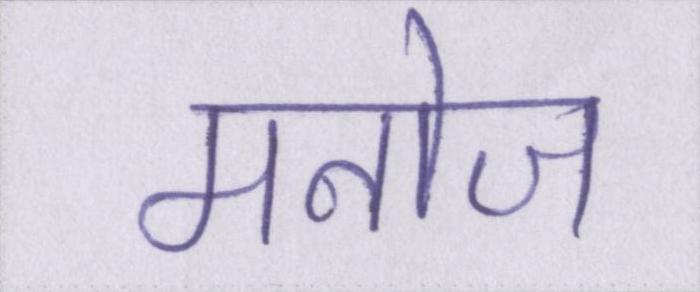 मनोज